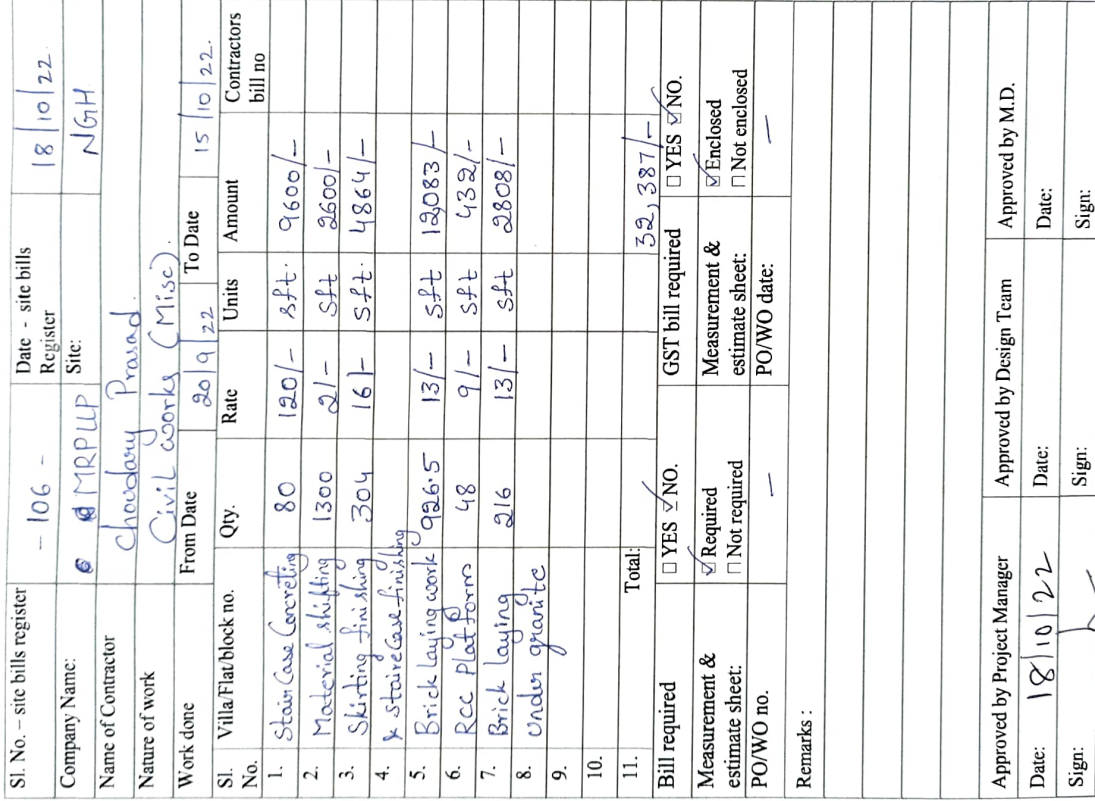 Sl. No. – site bills register - 106 - Date - site bills Register 18/10/22.
Company Name: MRPLLP Site: NGH
Name of Contractor Choudary Prasad.
Nature of work Civil works (Misc).
Work done From Date 20/9/22 To Date 15/10/22.
Sl. No. Villa/Flat/block no. Qty. Rate Units Amount Contractors bill no
1. Stair Case Concreting 80 120/- sft. 9600/-
2. Material shifting 1300 2/- sft 2600/-
3. Skirting finishing 304 16/- sft. 4864/-
4. & staireCase finishing
5. Brick laying work 926.5 13/- sft 12,083/-
6. Rcc Platform 48 9/- sft 432/-
7. Brick laying 216 13/- sft 2808/-
8. Under granite
9.
10.
11. Total: 32,387/-
Bill required □ YES ☑ NO. GST bill required □ YES ☑ NO.
Measurement & estimate sheet: ☑ Required □ Not required Measurement & estimate sheet: ☑ Enclosed □ Not enclosed
PO/WO no. — PO/WO date: —
Remarks :
Approved by Project Manager Approved by Design Team Approved by M.D.
Date: 18/10/22 Date: Date:
Sign: Sign: Sign: